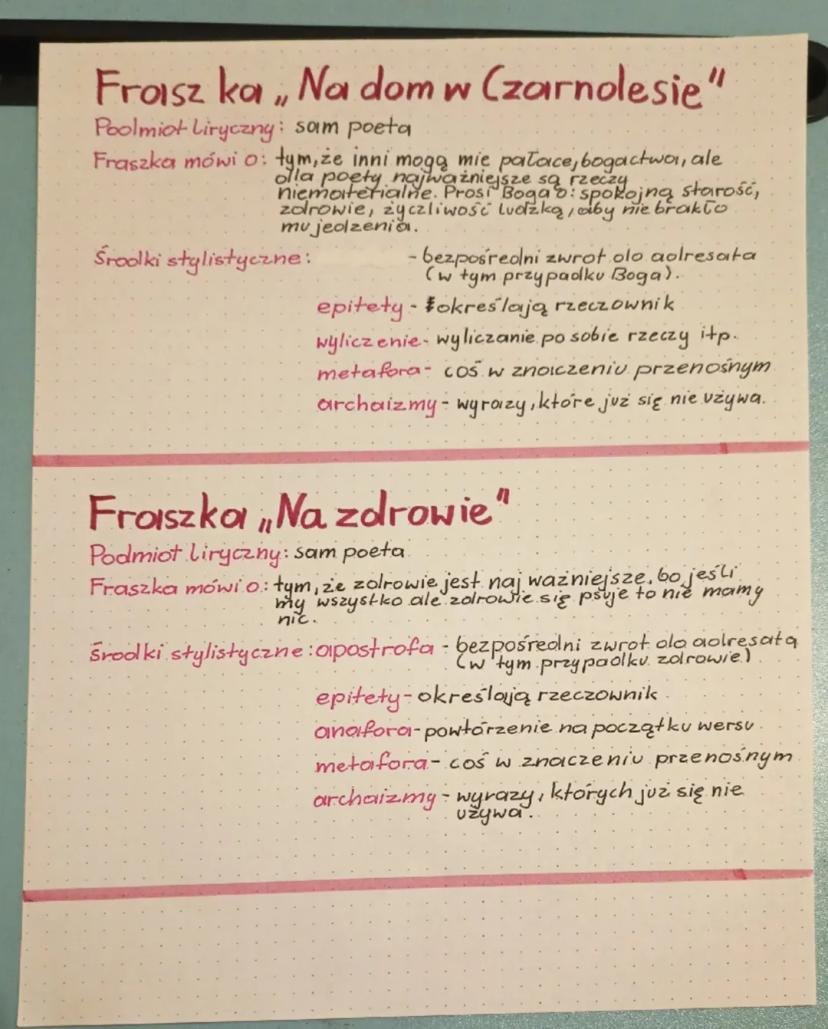 Fraszka „Na dom w Czarnolesie"
Podmiot liryczny: sam poeta
Fraszka mówi o: tym, że inni mogą mie pałace, bogactwa, ale
dla poety najważniejsze są rzeczy
niematerialne. Prosi Boga o: spokojną starość,
zdrowie, życzliwość ludzką, aby nie brakło
mu jedzenia.
Środki stylistyczne: - bezpośredni zwrot do adresata
(w tym przypadku Boga).
epitety - określają rzeczownik
wyliczenie - wyliczanie po sobie rzeczy itp.
metafora - coś w znaczeniu przenośnym
archaizmy - wyrazy, które już się nie używa.
Fraszka „Na zdrowie"
Podmiot liryczny: sam poeta
Fraszka mówi o: tym, że zdrowie jest naj ważniejsze, bo jeśli
my wszystko ale zdrowie się psuje to nie mamy
nic.
środki stylistyczne: apostrofa - bezpośredni zwrot do adresata
(w tym przypadku zdrowie)
epitety - określają rzeczownik
anafora - powtórzenie na początku wersu
metafora - coś w znaczeniu przenośnym
archaizmy - wyrazy, których już się nie
używa.